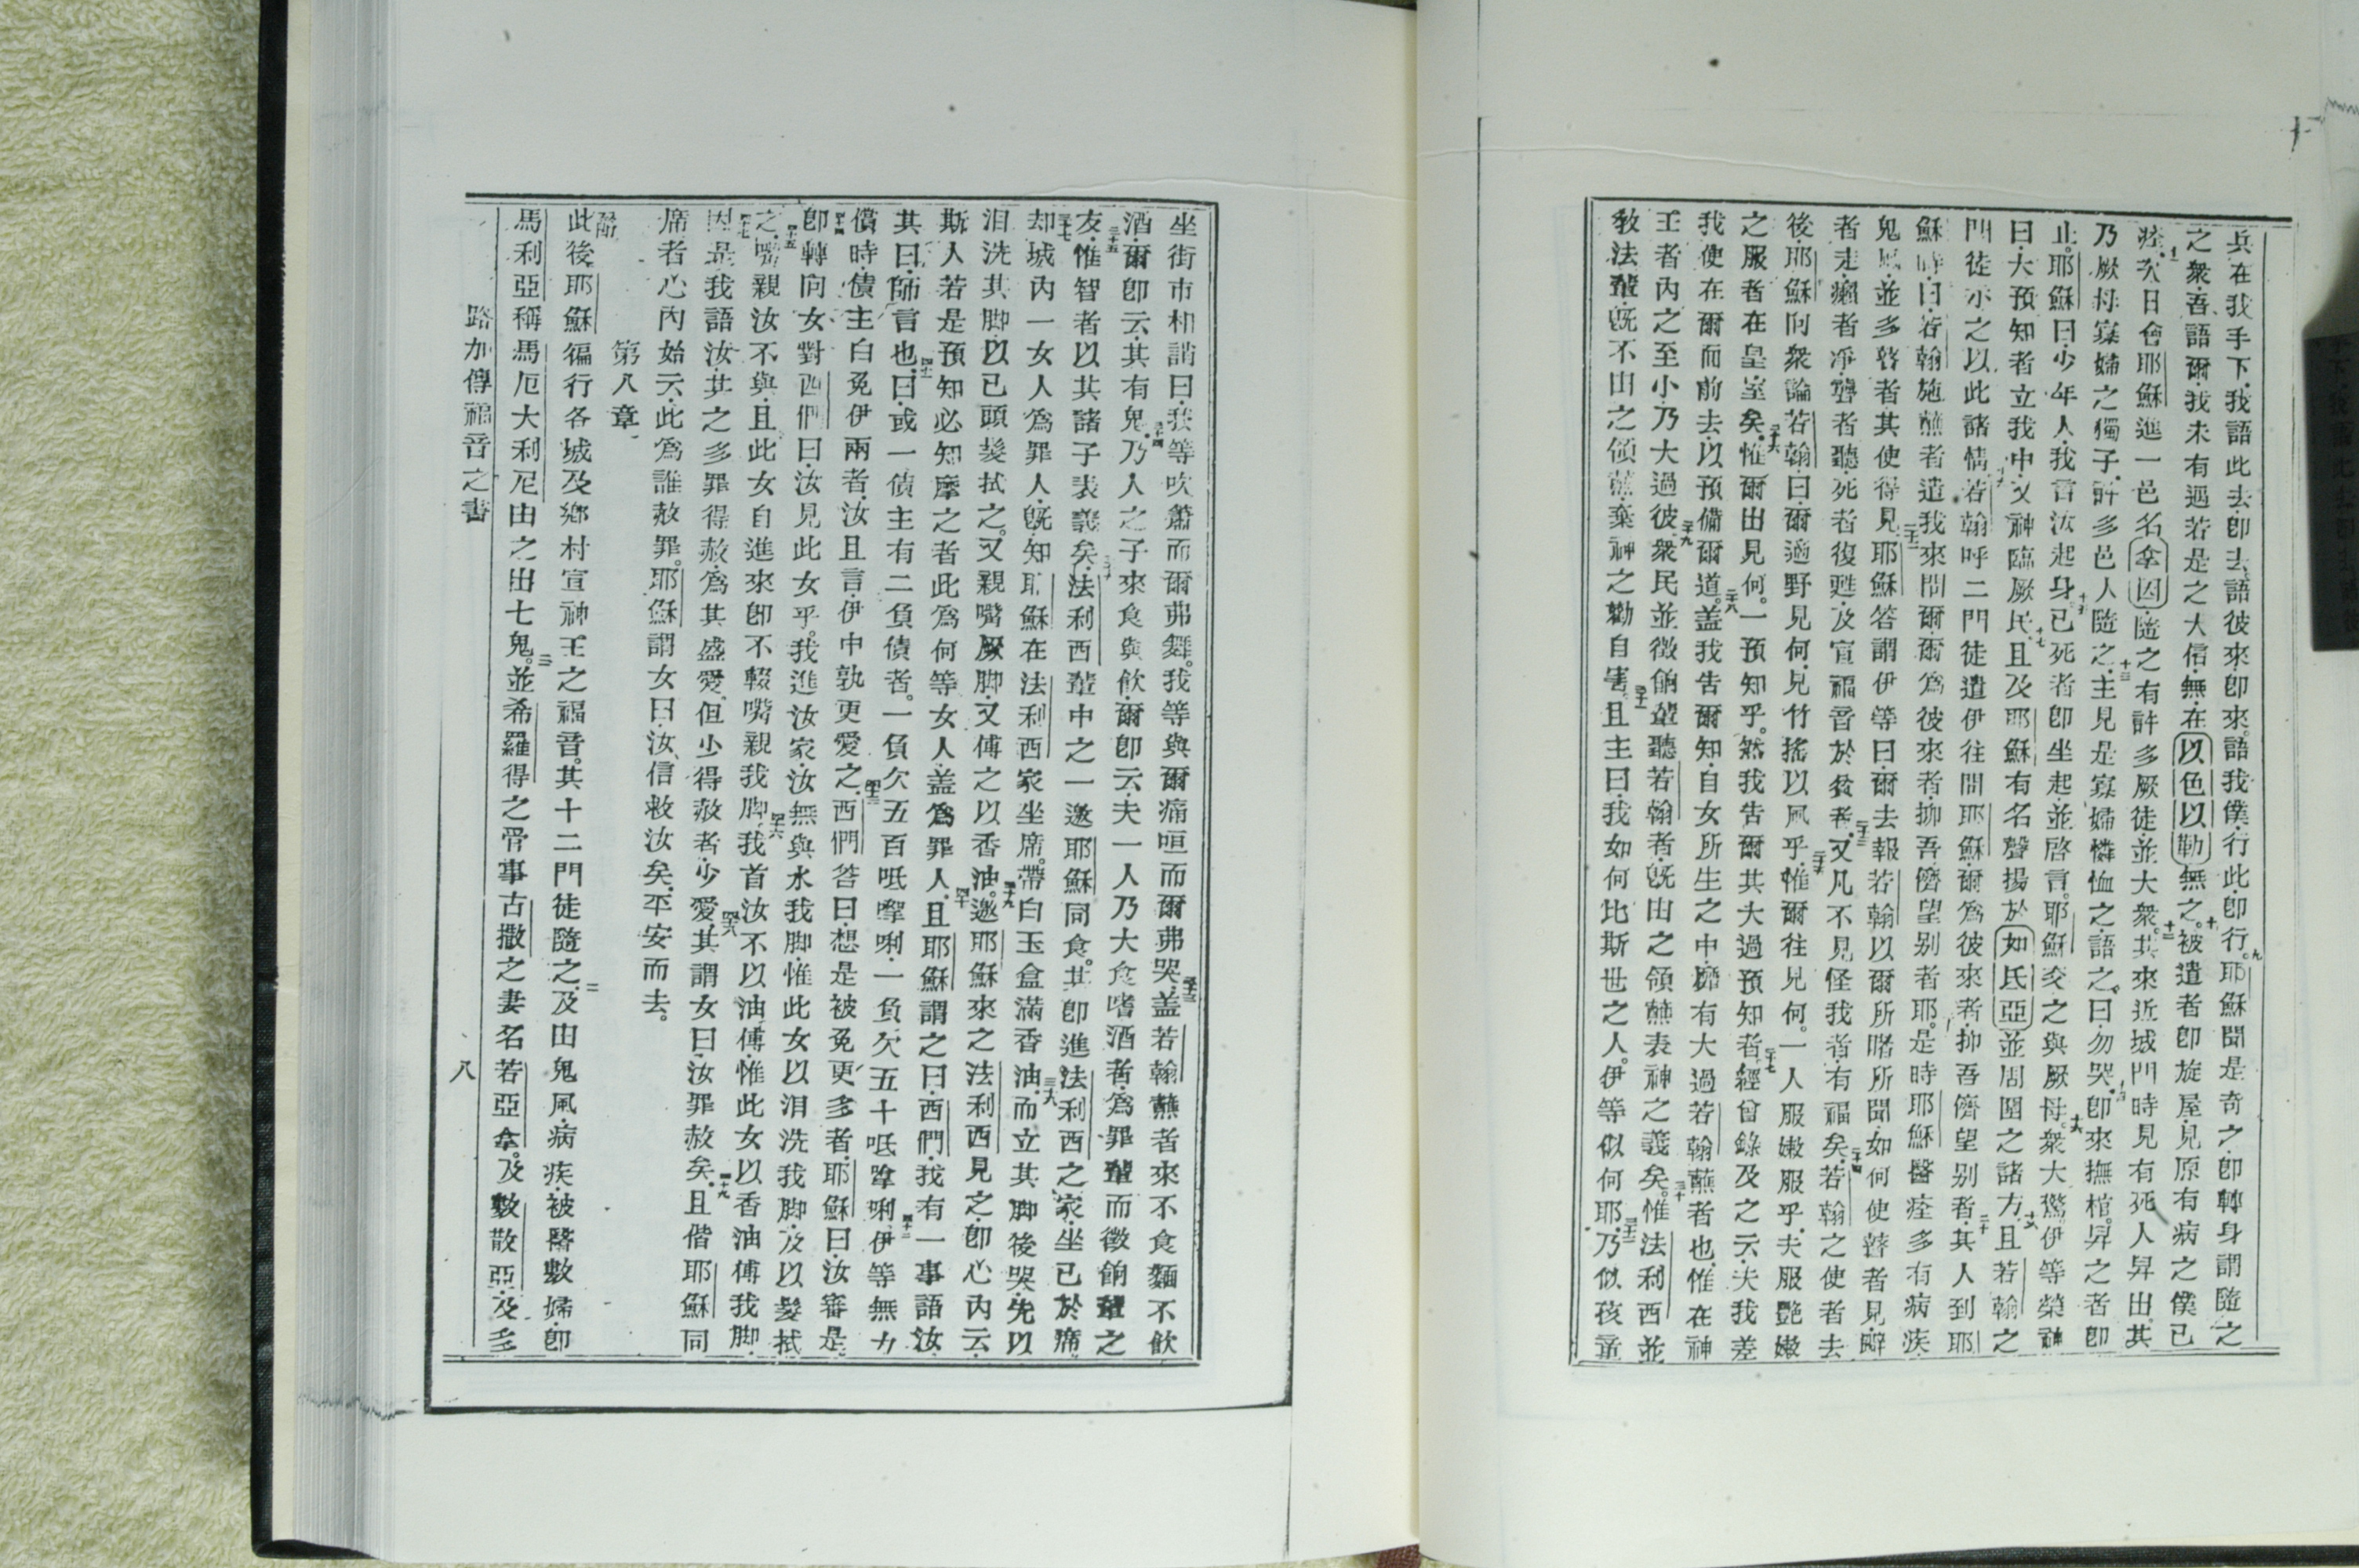 兵在我手下·我語此去·卽去·語彼來·卽來·語我僕·行此·卽行·九耶穌聞是奇之·卽轉身謂隨之
之衆·吾語爾·我未有遇若是之大信·無·在以色以勒無之。十被遣者卽旋屋·見原有病之僕已
痊·十一次日會耶穌進一邑名拿因·隨之有許多厥徒·並大衆·十二其來近城門時見有死人舁出·其
乃厥母寡婦之獨子·許多邑人隨之·十三主見是寡婦憐恤之·語之曰·勿哭·十四卽來撫棺·舁之者卽
止·耶穌曰·少年人·我言汝起身·十五已死者卽坐起·並啓言。耶穌交之與厥母·十六衆大驚·伊等榮神
曰·大預知者立我中·又神臨厥民·十七且及耶穌有名聲揚於如氏亞並周圍之諸方·十八且若翰之
門徒示之以此諸情·十九若翰呼二門徒遣伊往問耶穌·爾爲彼來者·抑吾儕望別者·二十其人到耶
穌時·曰·若翰施蘸者遣我來問爾·爾爲彼來者·抑吾儕望別者耶。二十一是時耶穌醫痊多有病疾·
鬼風·並多瞽者其使得見·二十二耶穌答謂伊等曰·爾去報若翰以爾所睹所聞·如何使瞽者見·跛
者走·癩者淨·聾者聽·死者復甦·及宣福音於貧者·二十三又凡不見怪我者·有福矣·二十四若翰之使者去
後·耶穌向衆論若翰曰·爾適野見何·見竹搖以風乎·二十五惟爾往見何。一人服嫩服乎·夫服艷嫩
之服者在皇室矣·二十六惟爾出見何。一預知乎。然我告爾其大過預知者·二十七經曾錄及之云·夫我差
我使在爾面前去·以預備爾道。二十八盖我告爾知·自女所生之中·靡有大過若翰蘸者也·惟在神
王者內之至小·乃大過彼·二十九衆民並徵餉輩聽若翰者·旣由之領蘸表神之義矣。三十惟法利西並
敎法輩旣不由之領蘸·棄神之勸自害·三十一且主曰·我如何比斯世之人。伊等似何耶·三十二乃似孩童
坐街市相謂曰·我等吹簫而爾弗舞。我等與爾痛咺而爾弗哭·三十三盖若翰蘸者來不食麵不飮
酒·爾卽云·其有鬼·三十四乃人之子來食與飮·爾卽云·夫一人乃大食嗜酒者·爲罪輩而徵餉輩之
友·三十五惟智者以其諸子表義矣·三十六法利西輩中之一邀耶穌同食。其卽進法利西之家·坐已於席。
三十七却城內一女人爲罪人·旣知耶穌在法利西家坐席。帶白玉盒滿香油·三十八而立其脚後哭·先以
泪洗其脚·以已頭髮拭之。又親嘴厥脚·又傅之以香油。三十九邀耶穌來之法利西見之·卽心內云·
斯人若是預知必知摩之者此爲何等女人·盖爲罪人·四十且耶穌謂之曰·西們·我有一事語汝·
其曰·師言也·四十一曰·或一債主有二負債者。一負欠五百呧嚀唎·一負欠五十呧嚀唎·四十二伊等無力
償時·債主白免伊兩者·汝且言·伊中孰更愛之·四十三西們答曰·想是被免更多者·耶穌曰·汝審是。
四十四卽轉向女·對西們曰·汝見此女乎。我進汝家·汝無與水我脚·惟此女以泪洗我脚·及以髮拭
之·四十五嘴親汝不與·且此女自進來卽不輟嘴親我脚·四十六我首汝不以油傅·惟此女以香油傅我脚·
四十七因是我語汝·其之多罪得赦·爲其盛愛·但少得赦者·少愛·四十八其謂女曰·汝罪赦矣·四十九且偕耶穌同
席者心內始云·此爲誰赦罪。耶穌謂女曰·汝信救汝矣·平安而去。
第八章
此後·耶穌徧行各城及鄉村宣神王之福音。其十二門徒隨之·二及由鬼風·病疾·被醫數婦·卽
馬利亞稱馬厄大利尼由之出七鬼·三並希羅得之管事古撒之妻名若亞拿·及數散亞·及多
路加傳福音之書 八